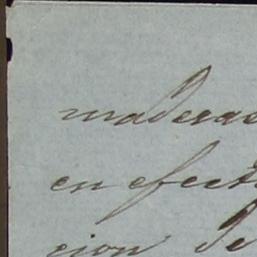 maderas
en efect
cion de